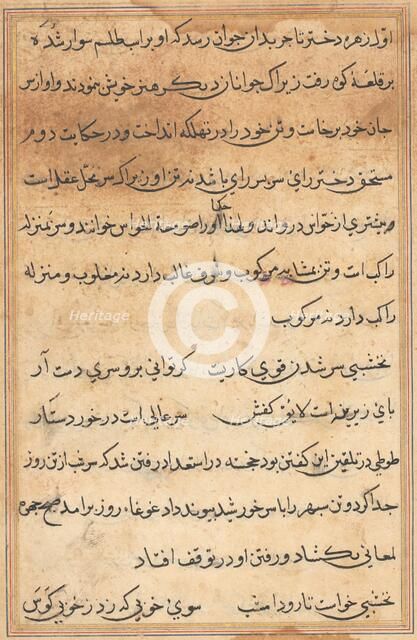 اول زهره دختر تاجر بدان جوان رسد که او بر اسب طلسم سوار شده
بر قلعهٔ کوه رفت زیراک جوانان دیگر هنر خویش نمودند و او از سر
جان خود برخاست و تن خود را در تهلکه انداخت و در حکایت دوم
مستحق دختر رای سر پسر رای باشد نه تن او زیراکه سر محل عقل است
و بیشتری از حواس در واند و لهذا او را صومعة الحواس خوانند و سر بمنزله
راکب است و تن بمثابه مرکوب و طرف غالب دارد نه مغلوب و منزله
راکب دارد نه مرکوب
نخشبی سر شدن قوی کاریست گر توانی برو سری دست آر
پای زیرین است لایق کفش سر عالی است در خور دستار
طوطی در تلقین این گفتن بود خجسته در استعداد رفتن شد که سر شب از تن روز
جدا کردن سپهر را با سر خورشید پیوند داد غوغاء روز برآمد صبح چهره
لمعانی بگشاد و رفتن او در توقف افتاد
نخشبی خواست تا رود امشب سوی خوبی که زد ز خوبی کوس
Heritage Heritage